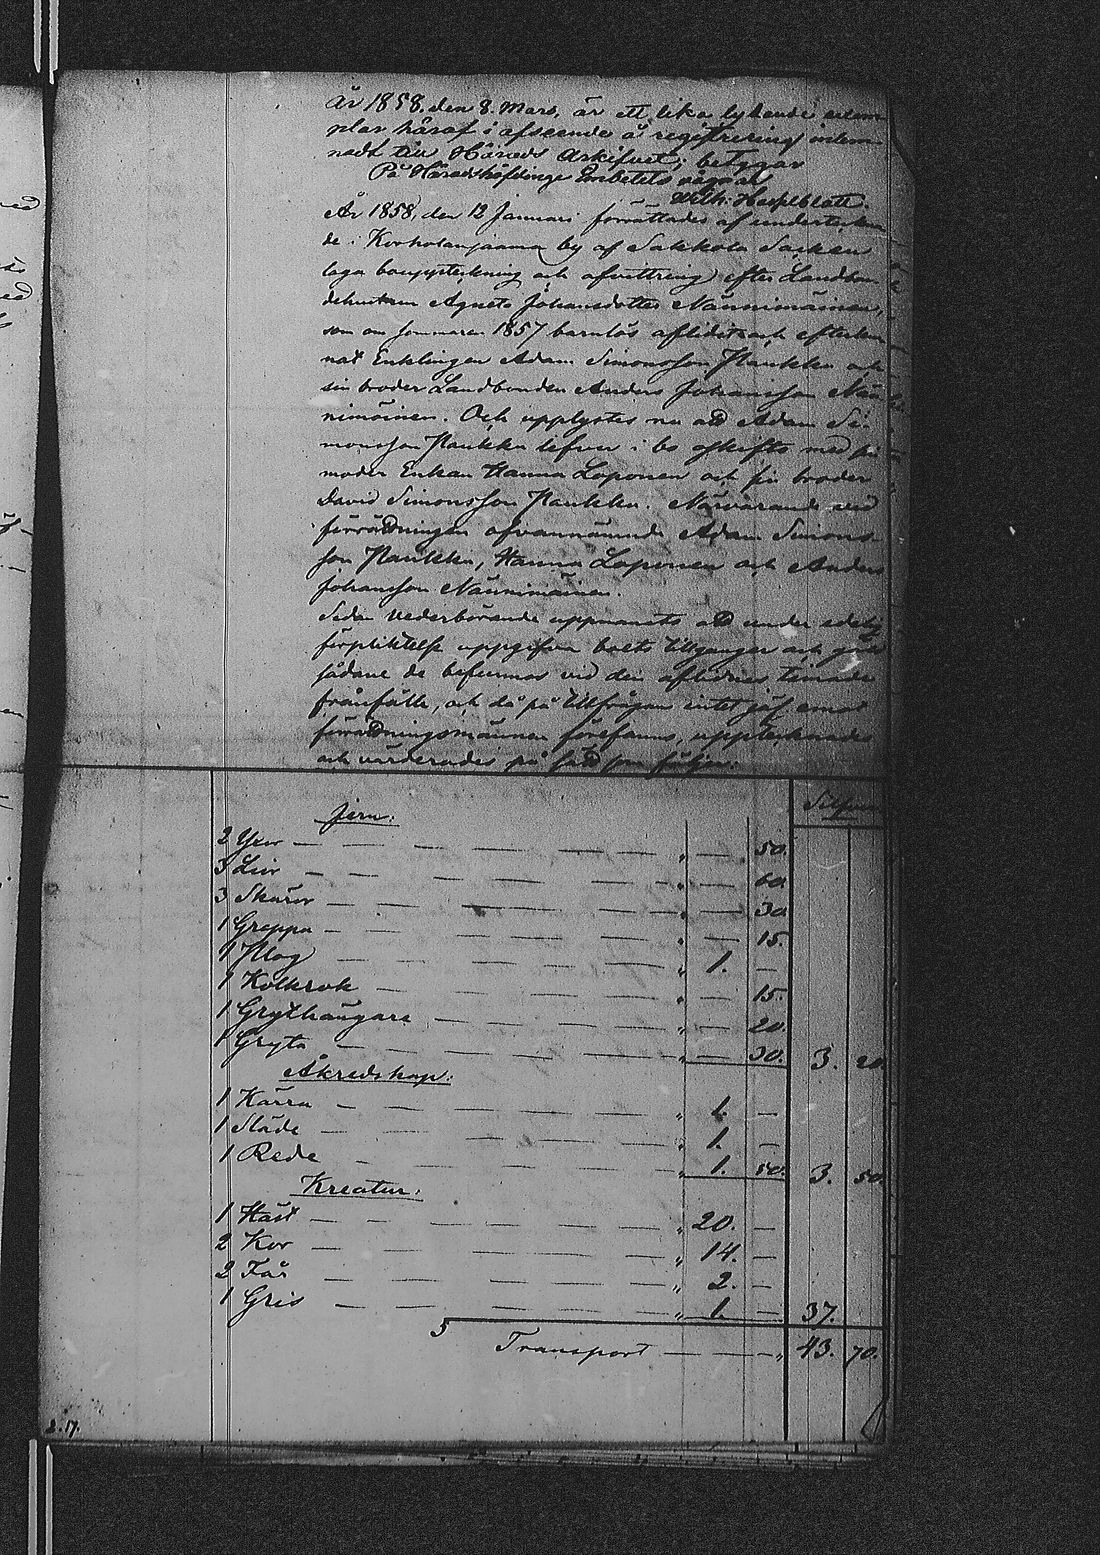 År 1858, den 8. Mars, är ett lika lydande exem
plar häraf i afseende å registrering inlem
nadt till Härads Arkifvet; betygar
På Häradshöfdinge Embetets vägnar
Wilh. Hasselblatt.
År 1858, den 12 Januari förrättades af undertekna
de i Korholanjaama by af Sakkola Socken
laga bouppteckning och afvittring efter Landbon
dehustrun Agneta Johansdotter Nännimäinen,
som om sommaren 1857 barnlös aflidit och efterlem
nat Enklingen Adam Simonsson Paukku och
sin broder Landbonden Anders Johansson Nän
nimäinen. Och upplystes nu att Adam Si-
monsson Paukku lefver i bo oskifto med sin
moder Enkan Hanna Loponen och sin broder
David Simonsson Paukku. Närvarande vid
förrättningen ofvannämnde Adam Simons-
son Paukku, Hanna Loponen och Anders
Johansson Nännimäinen.
Sedan vederbörande uppmanats att under edelig
förpliktelse uppgifva boets tillgångar och gäld
sådane de befunnos vid den aflidnes timade
frånfälle, och då på tillfrågan intet jäf emot
förrättningsmännen förefanns, upptecknades
och värderades på sätt som följer:
Silfver
Jern:
2 Yxor — — — " — 50.
3 Liar — — — " — 60.
3 Skäror — — — " — 30.
1 Greppa — — — " — 15.
1 Plog — — — " 1. —
1 Kolkrok — — — " — 15.
1 Grythängare — — — " — 20.
1 Gryta — — — " — 30. 3. 20.
Åkredskap:
1 Kärra — — — " 1. —
1 Släde — — — " 1. —
1 Rede — — — " 1. 50. 3. 50.
Kreatur:
1 Häst — — — " 20. —
2 Kor — — — " 14. —
2 Får — — — " 2. —
1 Gris — — — " 1. — 37.
Transport — — — " 43. 70.
2.17.